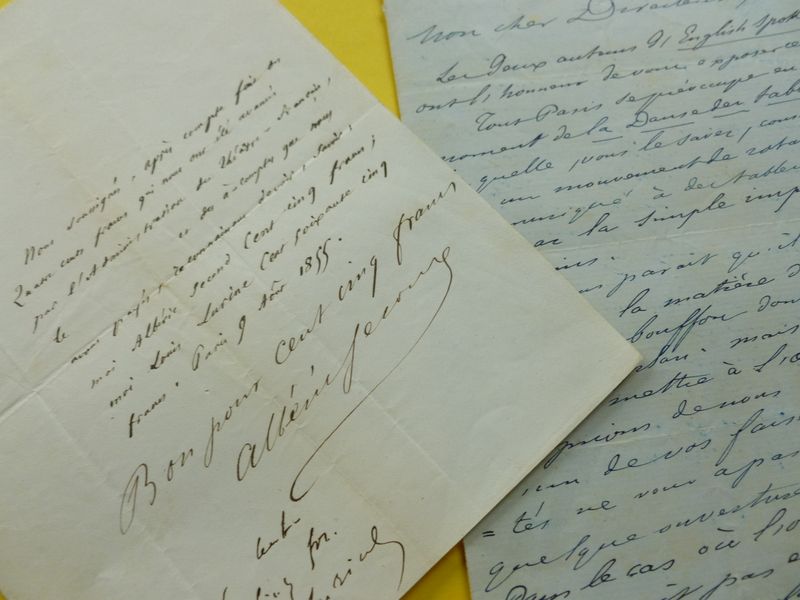 Nous soussignés, après compte fait des
Quatre cents francs qui nous ont été avancés
par l'Administration du Théâtre
le et des à-comptes que nous
avons payés, reconnaissons devoir, savoir,
moi Albéric Second Cent cinq francs,
moi Louis Lurine Cent soixante cinq
francs. Paris 9 Août 1855.
Bon pour cent cinq francs
Albéric Second
fr.
Mon cher Directeur,
Les deux auteurs d'English Spok
ont l'honneur de vous exposer ce
Tout Paris se préoccupe en
moment de la Danse des tabl
quelle, vous le savez, cons
un mouvement de rota
muniqué à des table
ar la simple imp
ins.
us parait qu'il
la matière d
bouffon don
plan mais
mettre à l'oe
prions de nous
un de vos fais
= tés ne vous a pas
quelque ouverture
Dans le cas où l'o
it pas e